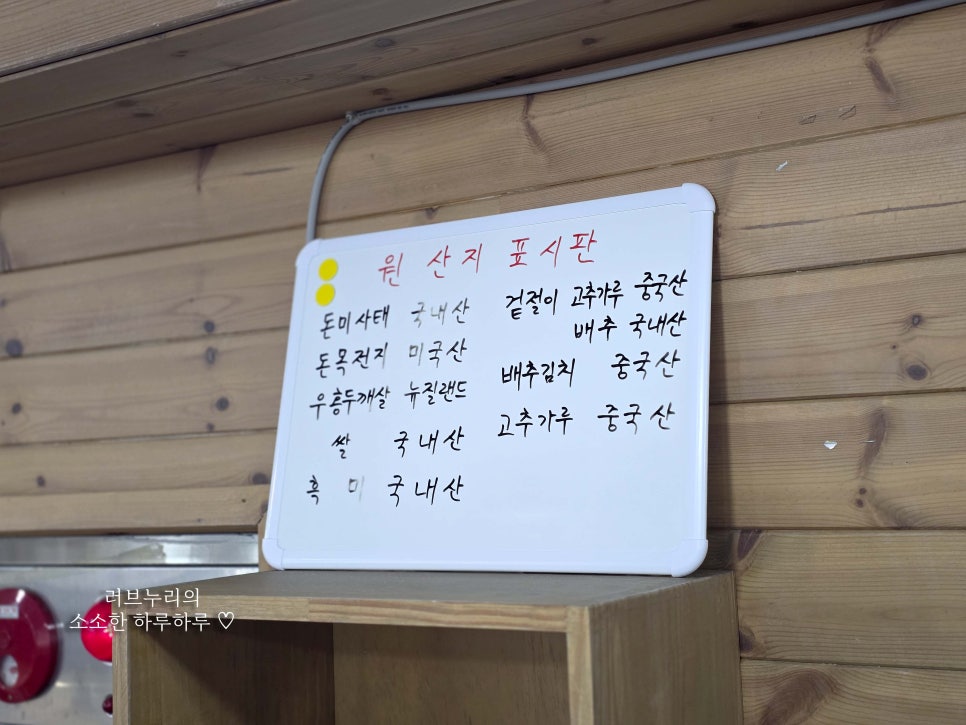 원산지 표시판
돈미사태 국내산
돈목전지 미국산
우흥두깨살 뉴질랜드
쌀 국내산
흑미 국내산
겉절이 고추가루 중국산
배추 국내산
배추김치 중국산
고추가루 중국산
러브누리의
소소한 하루하루 ♡